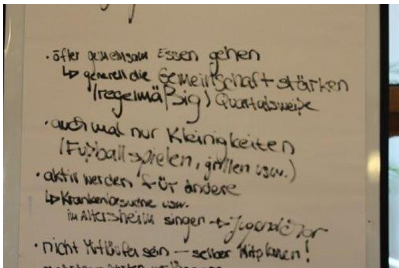 · öfter gemeinsam Essen gehen
↳ generell die Gemeinschaft stärken
(regelmäßig) Quartalsweise
· auch mal nur Kleinigkeiten
(Fußballspielen, grillen usw.)
· aktiv werden für andere
↳ Krankenbesuche usw.
im Altersheim singen → Jugendchor
· nicht Mitläufer sein – selber Mitplanen!